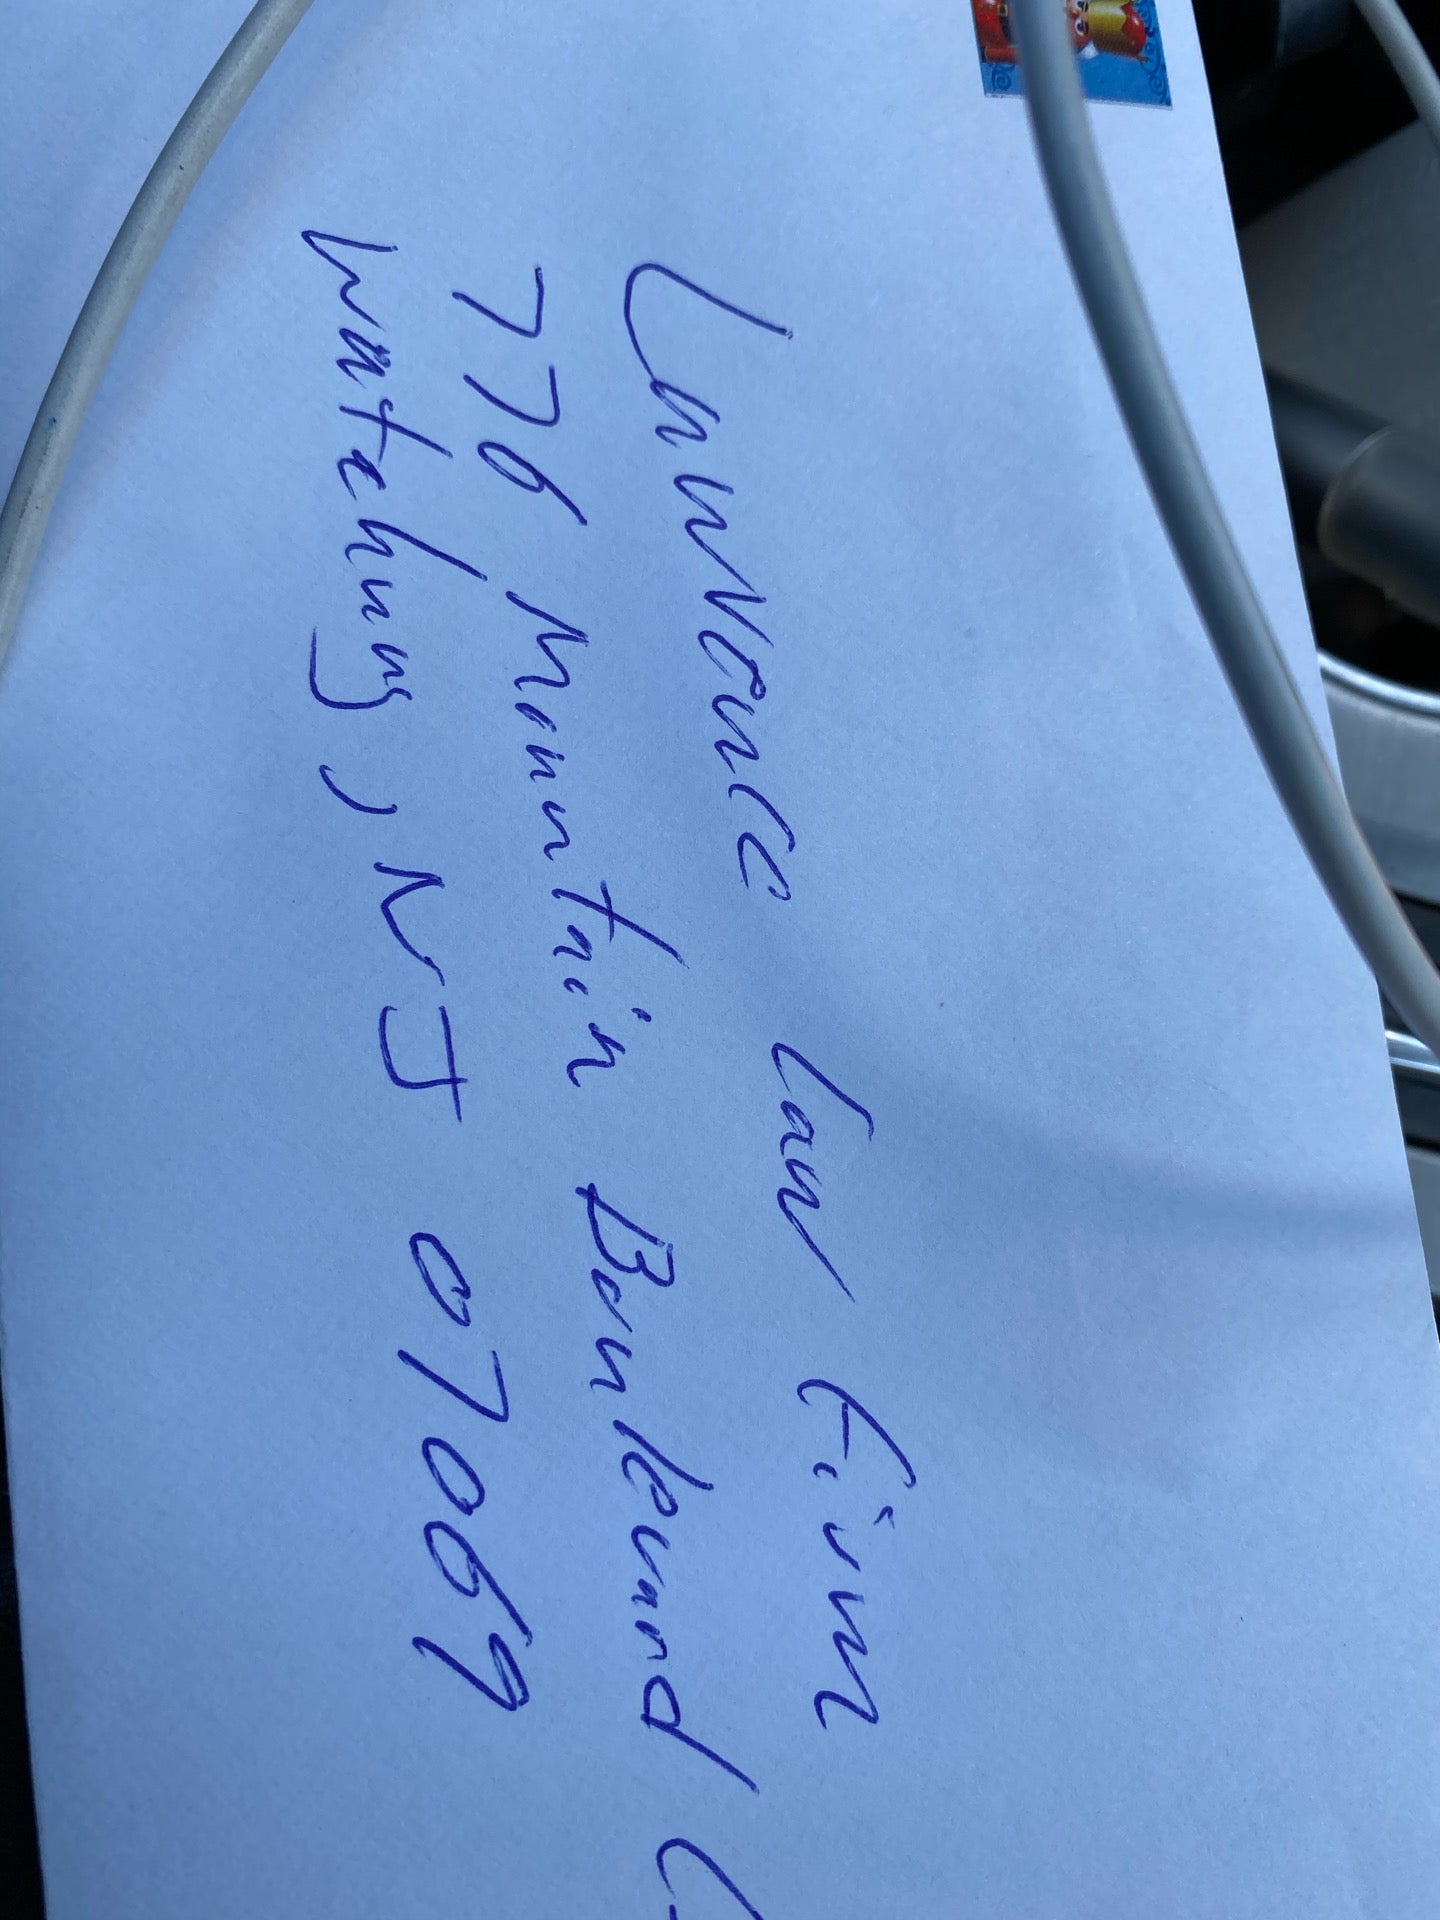 Lawrence Law Firm
776 Mountain Boulevard
Watchung, NJ 07069